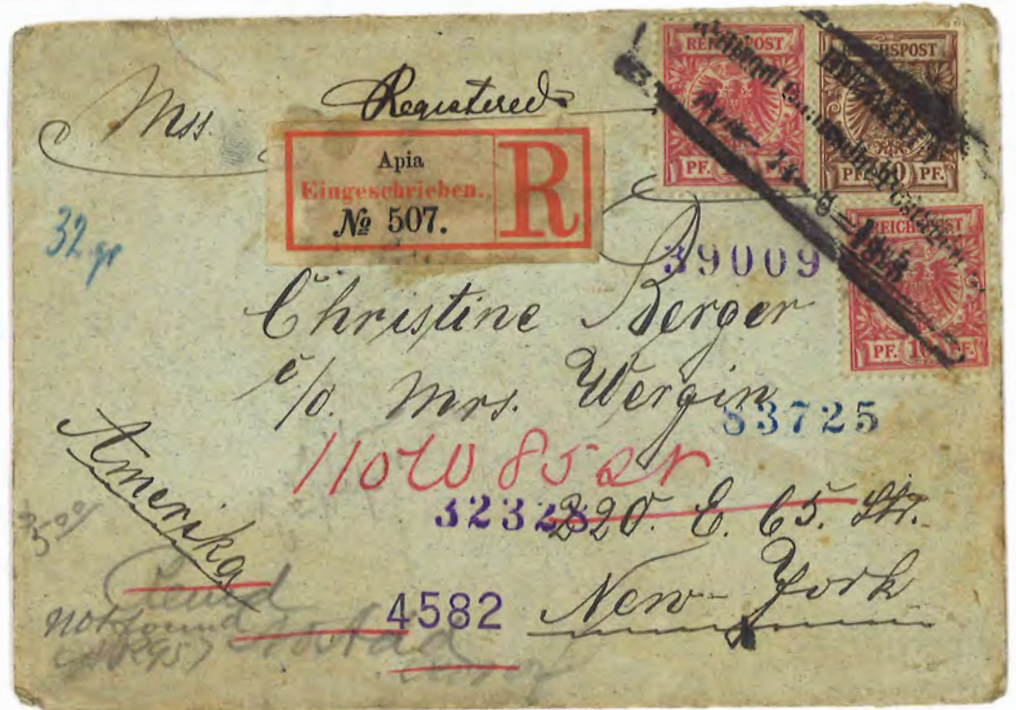 Mss.
Registered
Apia
Eingeschrieben.
R
№ 507.
REICHSPOST
PF. PF.
REICHSPOST
PF. PF.
REICHSPOST
PF. 10 PF.
32 gr
39009
Christine Berger
c/o. Mrs. Wergin
83725
110 W 85 str
32328
220. E. 65. Str.
New-York
Amerika
4582
not found